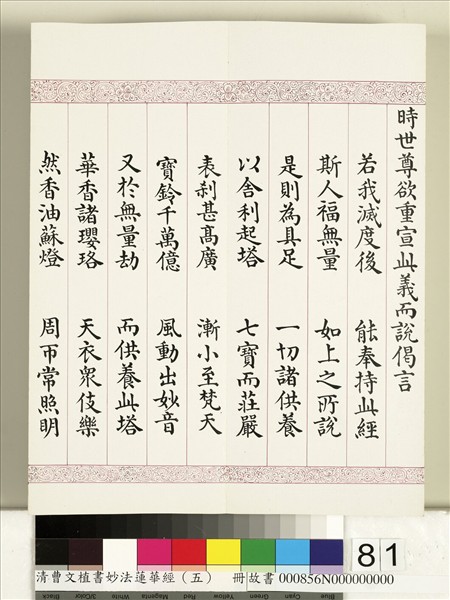 時世尊欲重宣此義而說偈言
若我滅度後　能奉持此經
斯人福無量　如上之所說
是則為具足　一切諸供養
以舍利起塔　七寶而莊嚴
表剎甚高廣　漸小至梵天
寶鈴千萬億　風動出妙音
又於無量劫　而供養此塔
華香諸瓔珞　天衣眾伎樂
然香油蘇燈　周帀常照明
81
清曹文埴書妙法蓮華經（五）　冊 故書 000856N000000000
Black 3/Color White Magenta Red Yellow Green Cyan Blue